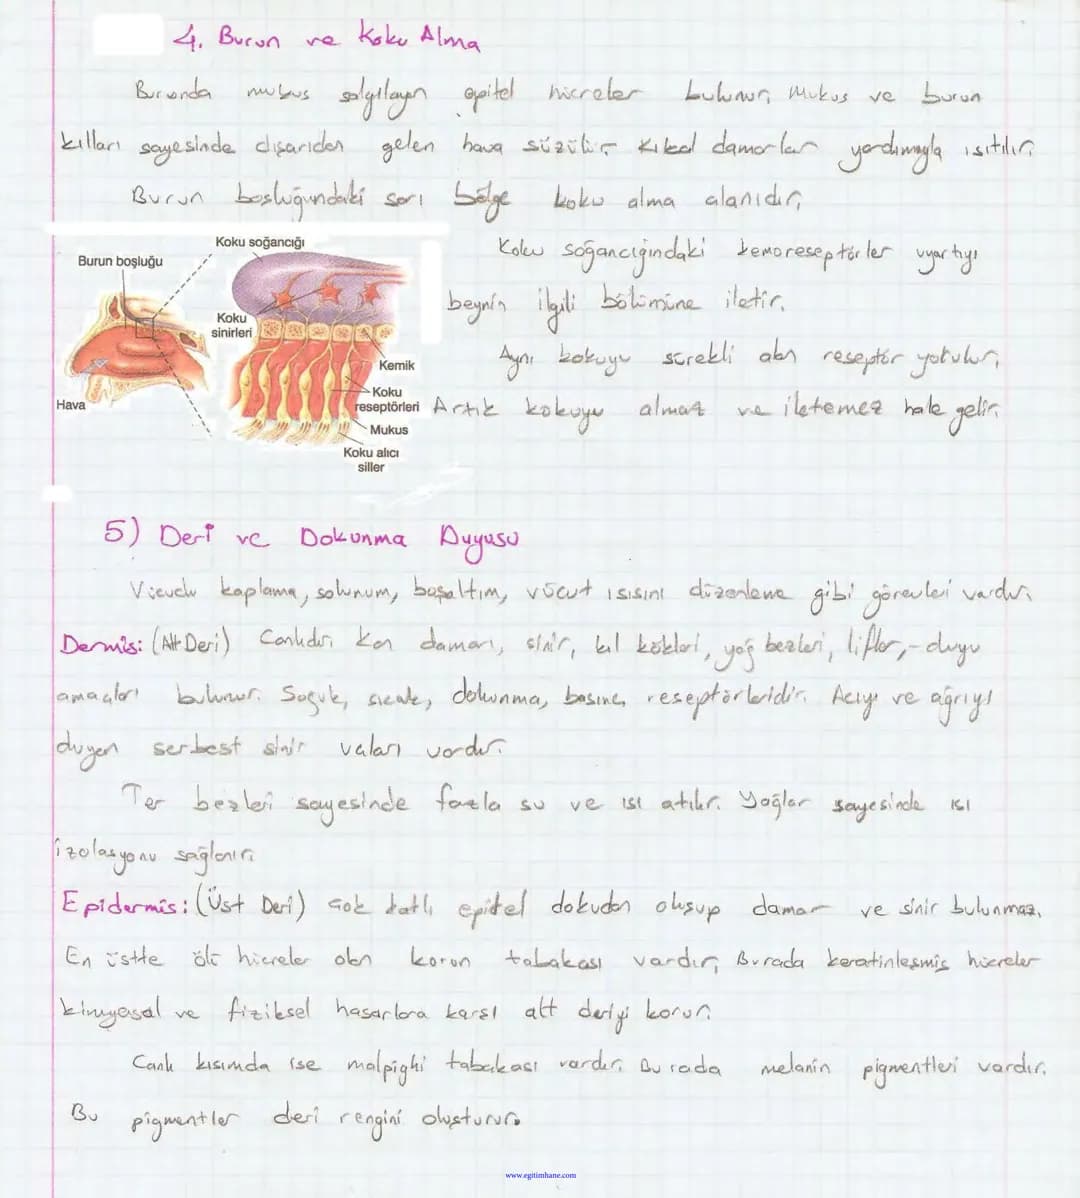 4. Burun ve Koku Alma
Burunda mukus salgılayan epitel hücreler bulunur. Mukus ve burun
kılları sayesinde dışarıdan gelen hava süzülür. Kılcal damarlar yardımıyla ısıtılır.
Burun boşluğundaki sarı bölge koku alma alanıdır.
Koku soğancığı
Burun boşluğu
Koku
sinirleri
Kemik
Koku
reseptörleri
Hava
Mukus
Koku alıcı
siller
Koku soğancığındaki kemoreseptörler uyartıyı
beynin ilgili bölümüne iletir.
Aynı kokuyu sürekli alan reseptör yorulur.
Artık kokuyu almaz ve iletemez hale gelir.
5) Deri ve Dokunma Duyusu
Vücudu kaplama, solunum, boşaltım, vücut ısısını düzenleme gibi görevleri vardır.
Dermis: (Alt Deri) Canlıdır. Kan damarı, sinir, kıl kökleri, yağ bezleri, lifler, - duyu
amaçları bulunur. Soğuk, sıcak, dokunma, basınç reseptörleridir. Acıyı ve ağrıyı
duyan serbest sinir uçları vardır.
Ter bezleri sayesinde fazla su ve ısı atılır. Yağlar sayesinde ısı
izolasyonu sağlanır.
Epidermis: (Üst Deri) Çok katlı epitel dokudan oluşup damar ve sinir bulunmaz.
En üstte ölü hücreler olan koron tabakası vardır. Burada keratinleşmiş hücreler
kimyasal ve fiziksel hasarlara karşı alt deriyi korur.
Canlı kısımda ise malpighi tabakası vardır. Burada melanin pigmentleri vardır.
Bu pigmentler deri rengini oluşturur.
www.egitimhane.com